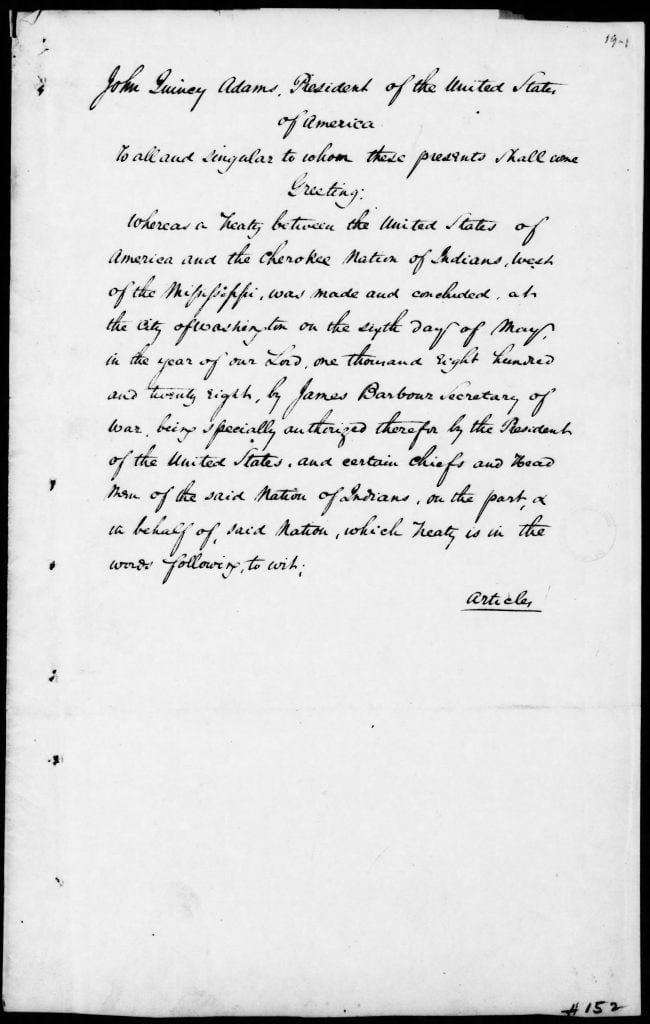 19-1
John Quincy Adams, President of the United States
of America
To all and singular to whom these presents shall come
Greeting:
Whereas a Treaty between the United States of
America and the Cherokee Nation of Indians, west
of the Mississippi, was made and concluded, at
the City of Washington on the sixth day of May,
in the year of our Lord, one thousand Eight hundred
and twenty Eight, by James Barbour Secretary of
War, being specially authorized therefor by the President
of the United States, and certain Chiefs and Head
Men of the said Nation of Indians, on the part, &
in behalf of, said Nation, which Treaty is in the
words following, to wit;
Articles
#152